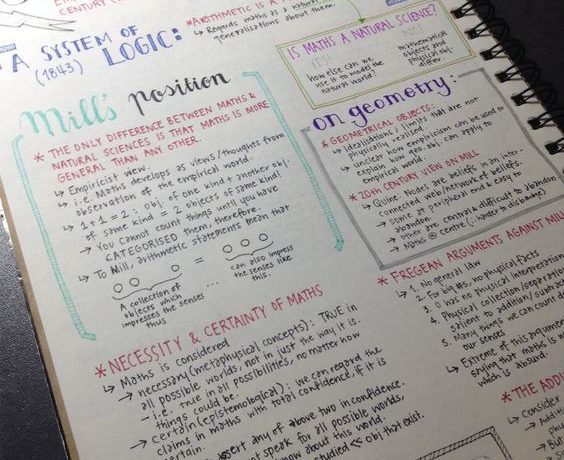 CENTURY
"A SYSTEM OF
(1843) LOGIC:
*ARITHMETIC IS A
↳ Regards maths as a natural
generalisations about them.
IS MATHS A NATURAL SCIENCE?
YES!
how else can we
use it to model the
natural world?
NO!
mathematical
objects and
physical obj
differ
Mill's position
* THE ONLY DIFFERENCE BETWEEN MATHS &
NATURAL SCIENCES IS THAT MATHS IS MORE
GENERAL THAN ANY OTHER.
↳ Empiricist view.
↳ i.e. Maths develops as views/thoughts from
observation of the empirical world.
↳ 1+1=2: obj. of one kind + another obj.
of same kind = 2 objects of same kind!
→ You cannot count things until you have
CATEGORISED them, therefore:
↳ To Mill, arithmetic statements mean that
=
A collection of
objects which
impresses the senses
thus
...
can also impress
the senses like
this.
on geometry:
* GEOMETRICAL OBJECTS:
↳ Idealisations / limits that are not
physically realised.
↳ unclear how empiricism can be used to
explain how geo. obj can apply to
empirical world.
* 20TH CENTURY VIEW ON MILL
↳ Quine: Nodes are beliefs in an inter-
connected web/network of beliefs.
→ some at peripheral end & easy to
abandon
→ Other are central & difficult to abandon
↳ Maths @ centre (: harder to disbelieve)
* NECESSITY & CERTAINTY OF MATHS
↳ Maths is considered
→ necessary (metaphysical concepts): TRUE in
all possible worlds, not in just the way it is.
- i.e. true in all possibilities, no matter how
things could be.
→ certain (epistemological): we can regard the
claims in maths with total confidence, if it is
certain.
assert any of above two in confidence.
speak for all possible worlds,
know about this world.
studied << obj that exist.
* FREGEAN ARGUMENTS AGAINST MILL
↳ 1. No general law
2. For big #s, no physical facts
3. 0 has no physical interpretation
4. Physical collection/separation
salient to addition/subtract
5. Many things we can count
our senses
↳ Extreme of this argument
saying that maths is
which is absurd.
* THE ADDI
↳ Consider
→ Additi
phy
→ But